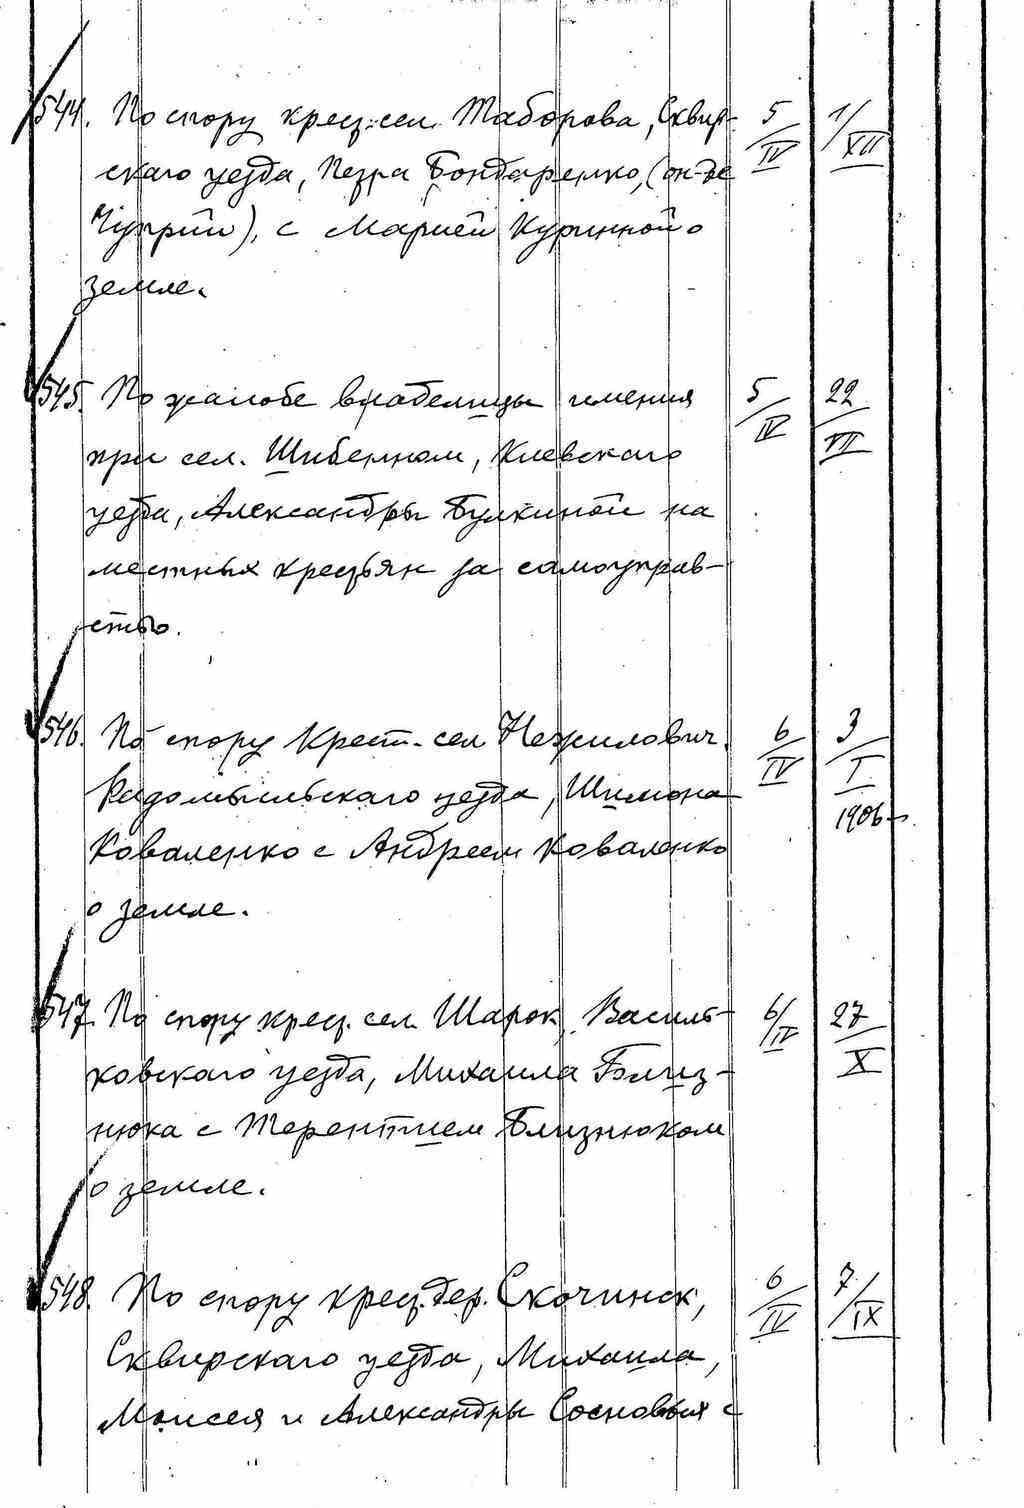 544. По спору крест. сел. Таборова, Сквир- 5/IV 1/XII
ского уезда, Петра Бондаренко, (он-же
Чуприй), с Марией Куринной о
земле.
545. По жалобе владелицы имения 5/IV 22/VII
при сел. Шибенном, Киевскаго
уезда, Александры Булкиной на
местных крестьян за самоуправ-
ство.
546. По спору крест. сел Нежилович. 6/IV 3/I
Радомысльскаго уезда, Шимона 1906 г.
Коваленко с Андреем Коваленко
о земле.
547. По спору крест. сел. Шарок, Василь- 6/IV 27/X
ковскаго уезда, Михаила Близ-
нюка с Терентием Близнюком
о земле.
548. По спору крест. дер. Скочинск, 6/IV 7/IX
Сквирскаго уезда, Михаила,
Моисея и Александры Сосновых с